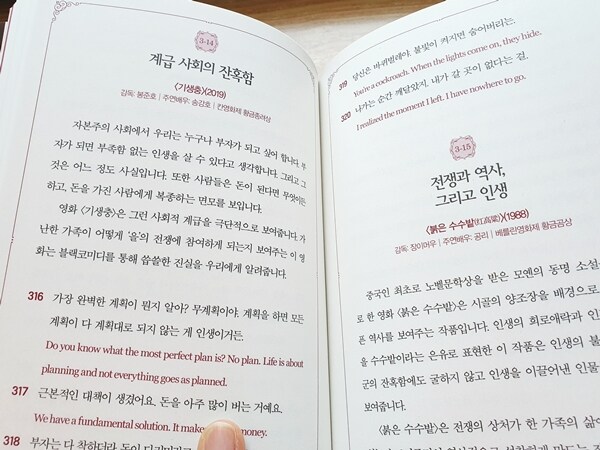 3-14
계급 사회의 잔혹함
〈기생충〉(2019)
감독: 봉준호 | 주연배우: 송강호 | 칸영화제 황금종려상
자본주의 사회에서 우리는 누구나 부자가 되고 싶어 합니다. 부
자가 되면 부족함 없는 인생을 살 수 있다고 생각합니다. 그리고 그
것은 어느 정도 사실입니다. 또한 사람들은 돈이 된다면 무엇이든
하고, 돈을 가진 사람에게 복종하는 면모를 보입니다.
영화 〈기생충〉은 그런 사회적 계급을 극단적으로 보여줍니다. 가
난한 가족이 어떻게 '을'의 전쟁에 참여하게 되는지 보여주는 이 영
화는 블랙코미디를 통해 씁쓸한 진실을 우리에게 알려줍니다.
316 가장 완벽한 계획이 뭔지 알아? 무계획이야. 계획을 하면 모든
계획이 다 계획대로 되지 않는 게 인생이거든.
Do you know what the most perfect plan is? No plan. Life is about
planning and not everything goes as planned.
317 근본적인 대책이 생겼어요. 돈을 아주 많이 버는 거예요.
We have a fundamental solution. It make money.
318 부자는 다 착하더라. 돈이
319 당신은 바퀴벌레야. 불빛이 켜지면 숨어버리는.
You're a cockroach. When the lights come on, they hide.
320 나가는 순간 깨달았지. 내가 갈 곳이 없다는 걸.
I realized the moment I left. I have nowhere to go.
3-15
전쟁과 역사,
그리고 인생
〈붉은 수수밭(紅高粱)〉(1988)
감독: 장이머우 | 주연배우: 공리 | 베를린영화제 황금곰상
중국인 최초로 노벨문학상을 받은 모옌의 동명 소설
로 한 영화 〈붉은 수수밭〉은 시골의 양조장을 배경으로
픈 역사를 보여주는 작품입니다. 인생의 희로애락과 인
을 수수밭이라는 은유로 표현한 이 작품은 인생의 불
군의 잔혹함에도 굴하지 않고 인생을 이끌어낸 인물
보여줍니다.
〈붉은 수수밭〉은 전쟁의 상처가 한 가족의 삶에